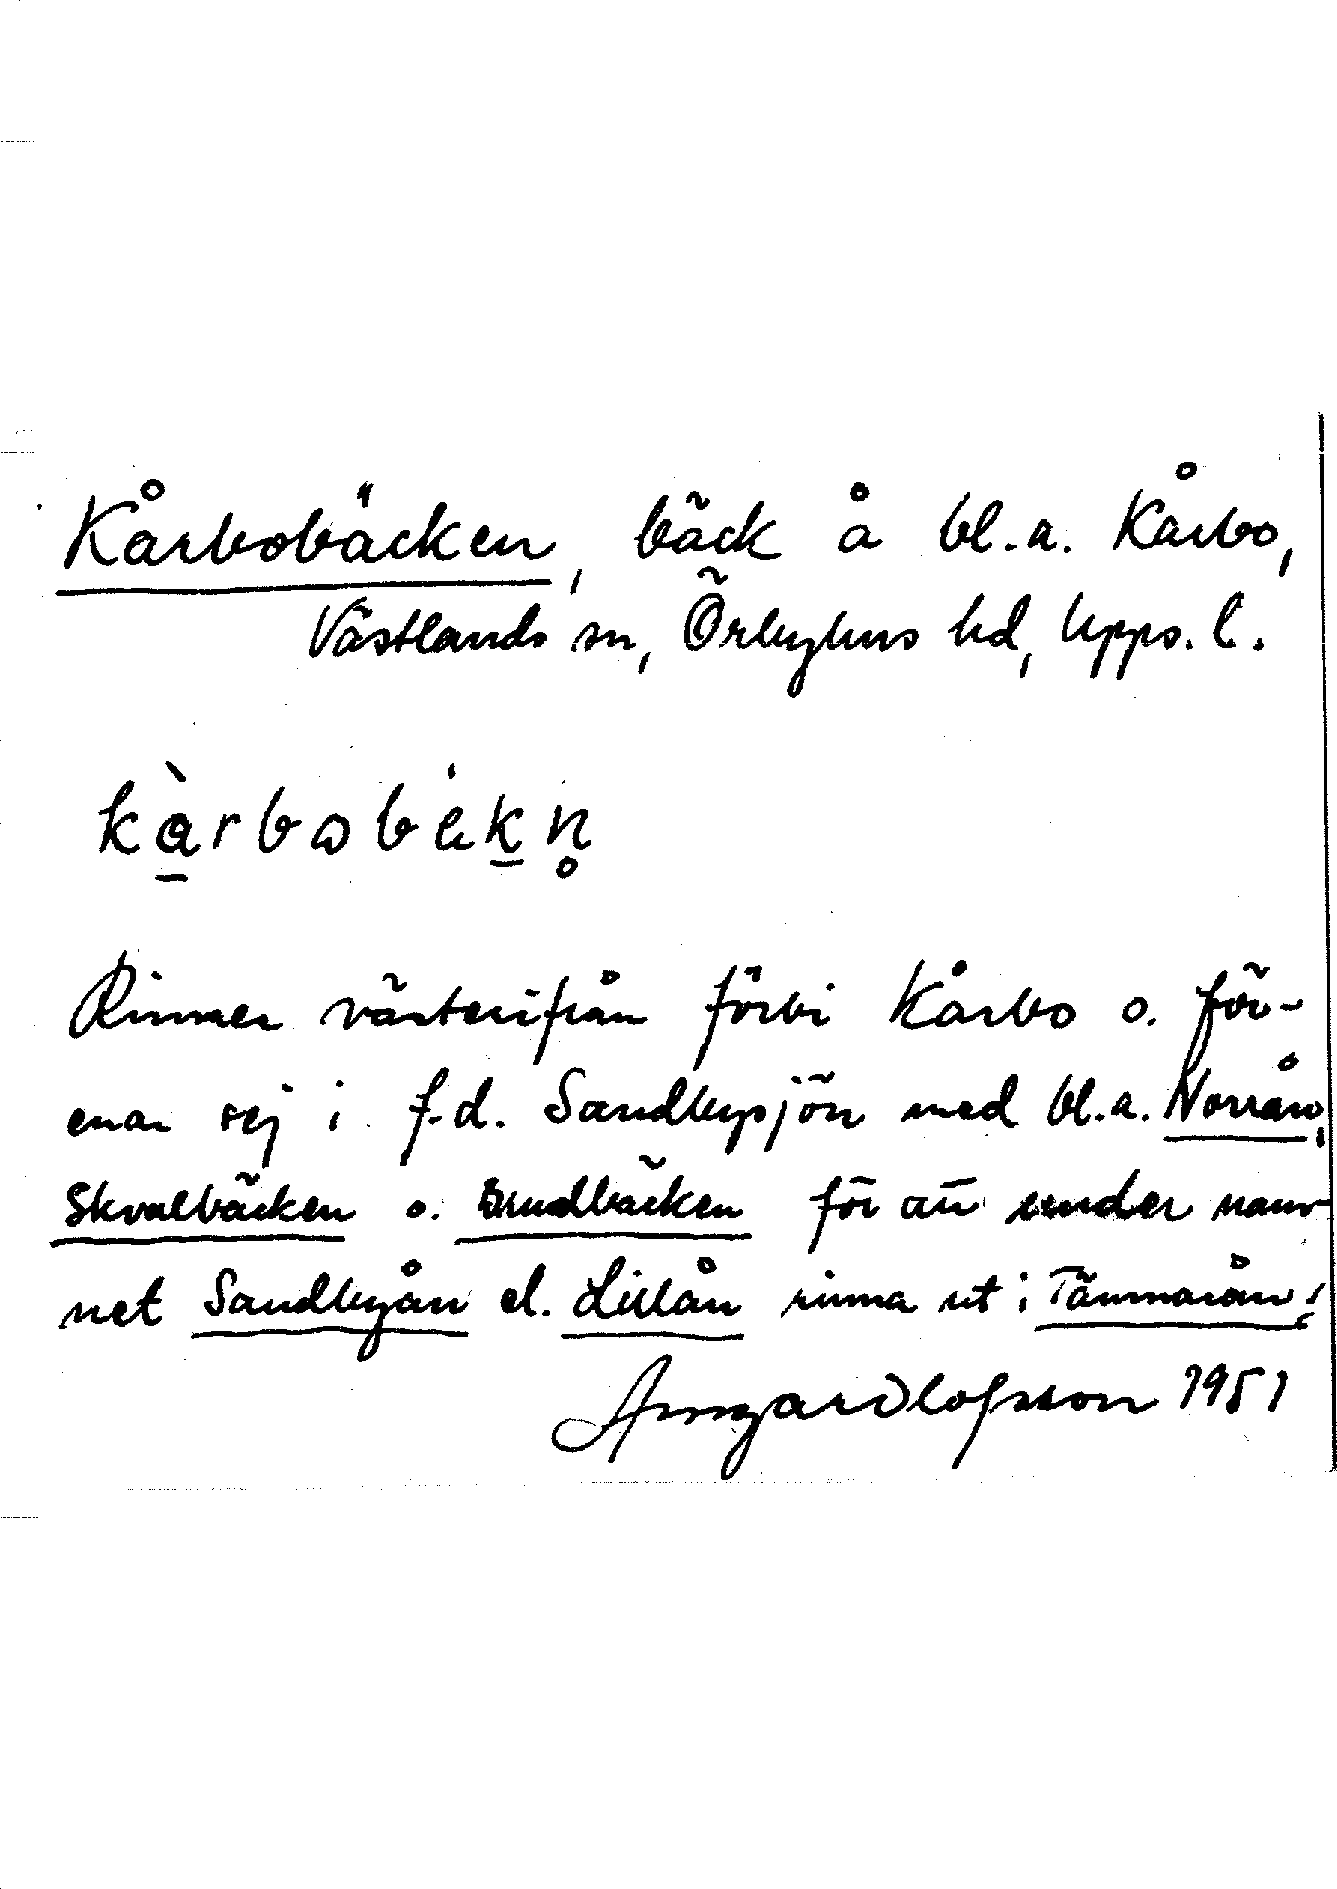 Kårbobäcken, bäck å bl.a. Kårbo,
Västlands sn, Örbyhus hd, Upps. l.
kàrbobekn̥
Rinner västerifrån förbi Kårbo o. för-
enar sej i f.d. Sandbysjön med bl.a. Norrån,
Skvalbäcken o. Brudbäcken för att under nam-
net Sandbyån el. Lillån rinna ut i Tämnarån.
Olofsson 1951